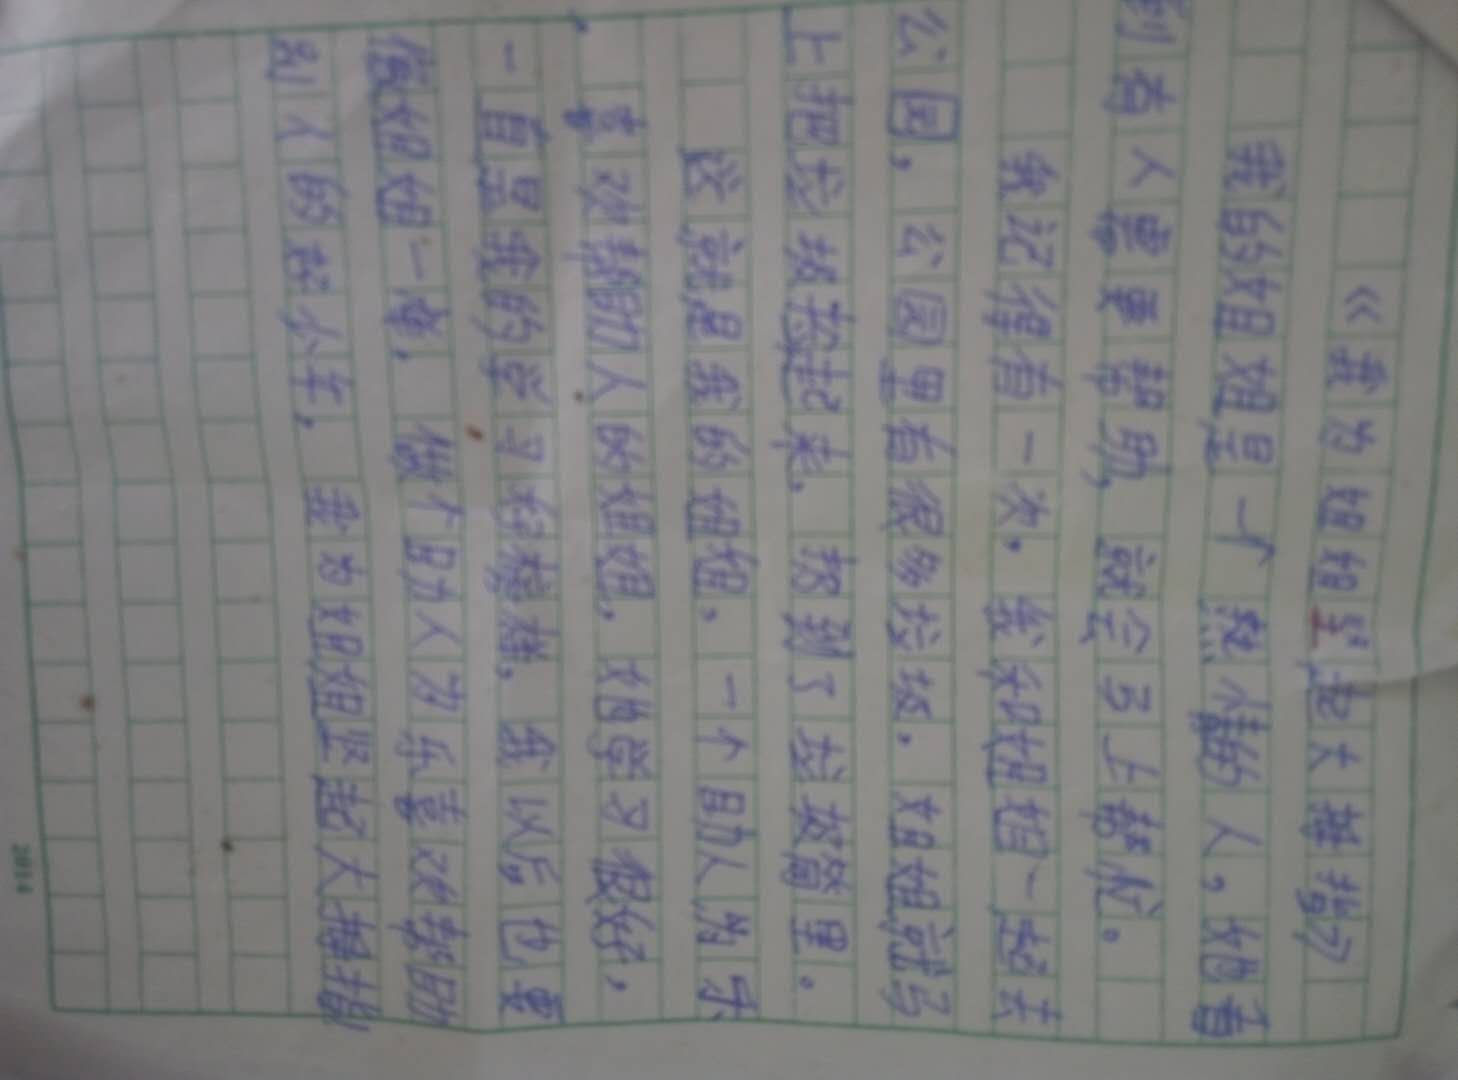 《我为姐姐竖起大拇指》
我的姐姐是一个热情的人,她看
到有人需要帮助,就会马上帮忙。
我记得有一次,我和姐姐一起去
公园,公园里有很多垃圾,姐姐就马
上把垃圾捡起来,扔到了垃圾筒里。
这就是我的姐姐,一个助人为乐
喜欢帮助人的姐姐,她学习很好,
一直是我的学习好榜样,我以后也要
像姐姐一样,做个助人为乐喜欢帮助
别人的好少年,我为姐姐竖起大拇指
2014